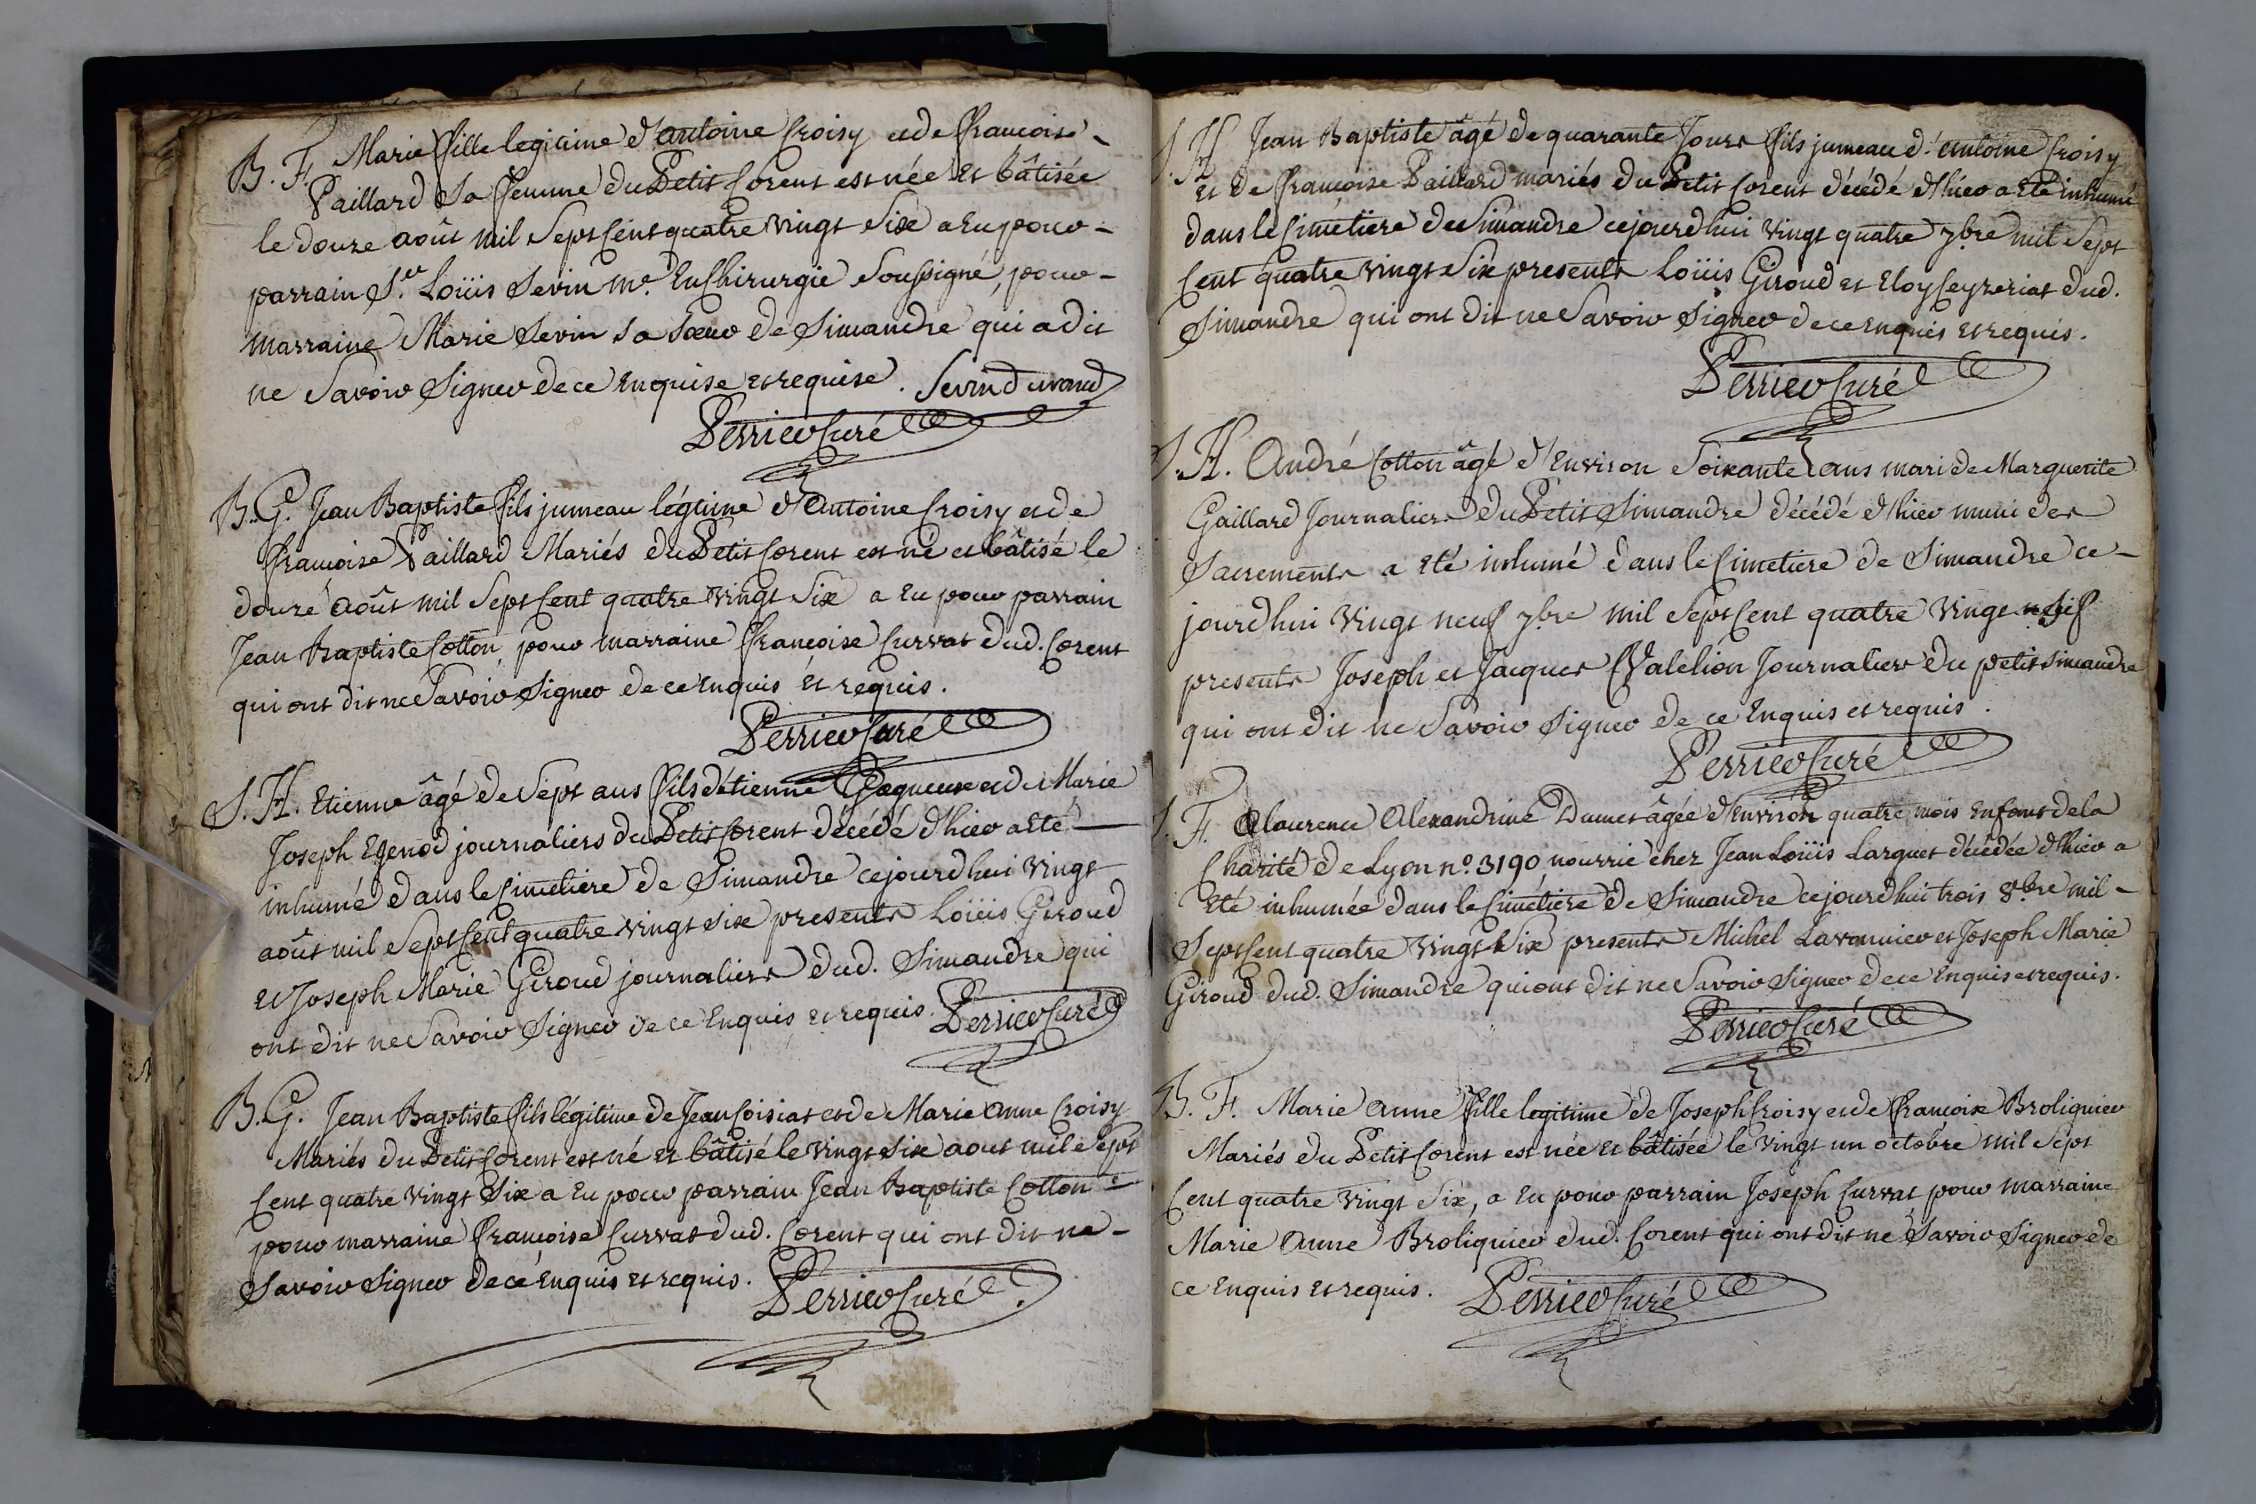 B. F. Marie fille legitime d'antoine Croisy et de francoise
Paillard Sa femme du Petit Corent est née et bâtisée
le douze août mil Sept Cent quatre vingt Six a eu pour
parrain Sr. Loüis Sevin me. En Chirurgie Soussigné, pour
marraine Marie Sevin Sa Sœur de Simandre qui a dit
ne Savoir Signer de ce Enquise et requise. Sevin Durand
Perrier Curé
B. G. Jean Baptiste fils jumeau légitime d'Antoine Croisy et de
françoise Paillard Mariés du Petit Corent est né et bâtisé le
douze août mil Sept Cent quatre vingt Six a Eu pour parrain
Jean Baptiste Cotton, pour marraine françoise Curvat dud. Corent
qui ont dit ne Savoir Signer de ce Enquis et requis.
Perrier Curé
S. H. Etienne âgé de Sept ans fils d'étienne et de Marie
Joseph journaliers du Petit Corent décédé d'hier a Eté
inhumé dans le Cimetiere de Simandre cejourd'hui vingt
août mil Sept Cent quatre vingt Six presents Loüis Giroud
et Joseph Marie Giroud journaliers dud. Simandre qui
ont dit ne Savoir Signer de ce Enquis et requis. Perrier Curé
B. G. Jean Baptiste fils légitime de Jean Coisiat et de Marie Anne Croisy
Mariés du Petit Corent est né et bâtisé le vingt Six aout mil Sept
Cent quatre vingt Six a Eu pour parrain Jean Baptiste Cotton
pour marraine françoise Curvat dud. Corent qui ont dit ne
Savoir Signer de ce Enquis et requis. Perrier Curé
S. H. Jean Baptiste âgé de quarante Jours fils jumeau d'antoine Croisy
et de françoise Paillard mariés du Petit Corent décédé d'hier a Eté inhumé
dans le Cimetiere de Simandre cejourd'hui vingt quatre 7bre mil Sept
Cent quatre vingt Six presents Loüis Giroud et Eloy Ceyzeriat dud.
Simandre qui ont dit ne Savoir Signer de ce Enquis et requis.
Perrier Curé
S. H. André Cotton âgé d'Environ Soixante ans mari de Marguerite
Gaillard Journaliers du Petit Simandre décédé d'hier muni des
Sacrements a Eté inhumé dans le Cimetiere de Simandre ce
jourd'hui vingt neuf 7bre mil Sept Cent quatre vingt
presents Joseph et Jacques Journaliers du petit Simandre
qui ont dit ne Savoir Signer de ce Enquis et requis.
Perrier Curé
S. F. laurence Alexandrine Dumet âgée d'Environ quatre mois Enfant de la
Charité de Lyon no. 3190 nourrie chez Jean Loüis Larguet décédée d'hier a
Eté inhumée dans le Cimétiere de Simandre cejourd'hui trois 8.bre mil
Sept Cent quatre vingt Six presents Michel et Joseph Marie
Giroud dud. Simandre qui ont dit ne Savoir Signer de ce Enquis et requis.
Perrier Curé
B. F. Marie Anne fille legitime de Joseph Croisy et de francoise Broliquier
Mariés du Petit Corent est née et bâtisée le vingt un octobre mil Sept
Cent quatre vingt Six, a Eu pour parrain Joseph Curvat pour marraine
Marie Anne Broliquier dud. Corent qui ont dit ne Savoir Signer de
ce Enquis et requis. Perrier Curé